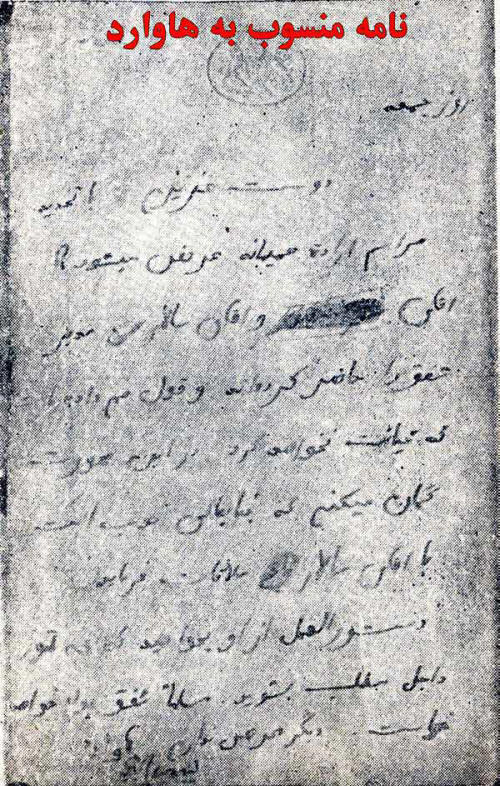 نامه منسوب به هاوارد
روز جمعه
دوست عزیزم
مراسم ارادت صمیمانه عرض میشود
آقای و آقای سالار من مدیر
شفق را حاضر کرده‌اند و قول هم داده
که خیانت نخواهد کرد در این صورت
گمان میکنم که خوب است
با آقای سالار ملاقات فرمایید
دستورالعمل از او بخواهید که
داخل مطلب بشوید. مسلماً شفق خواهد
خواست. دیگر عرضی ندارم